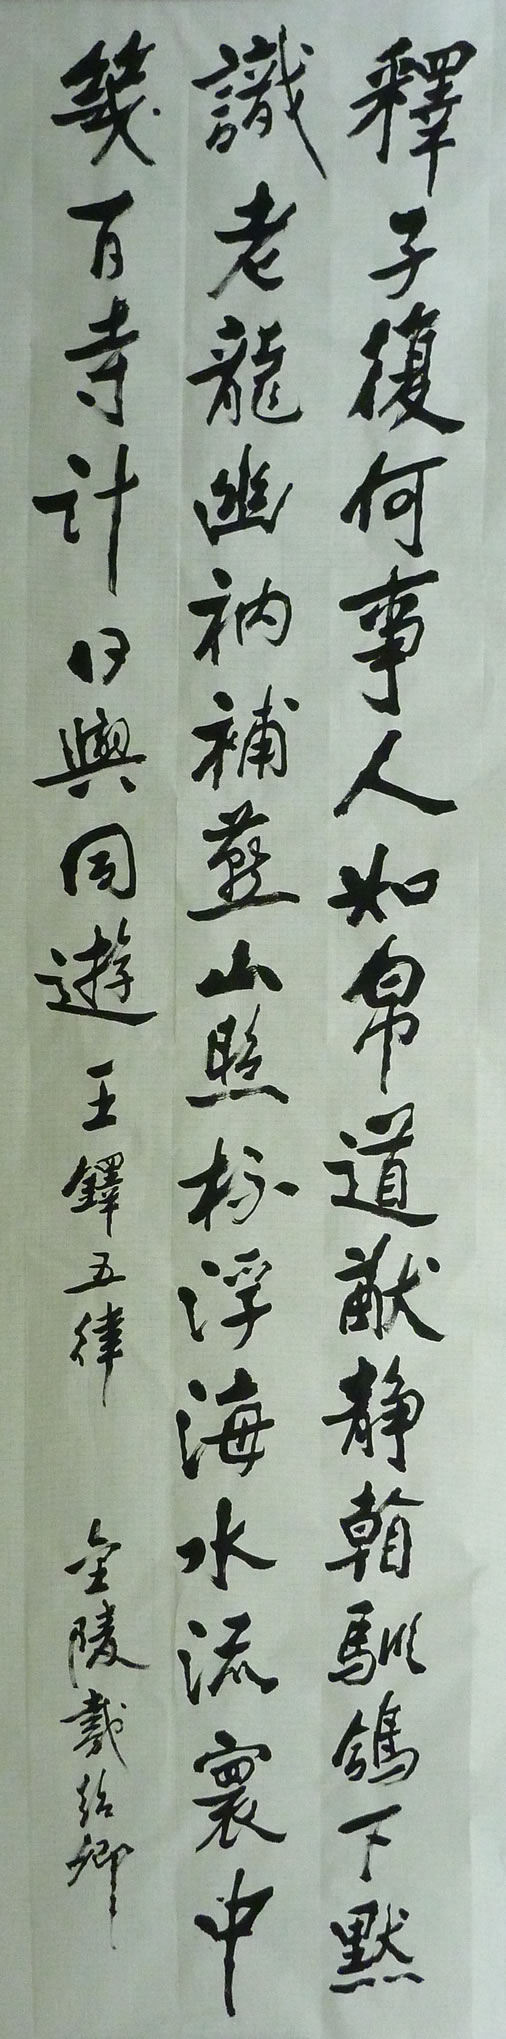 釋子復何事人如帛道猷静看馴鴿下默
識老龍幽衲補燕山照杯浮海水流寰中
幾百寺計日與同遊 王鐸五律 金陵戴紹卿